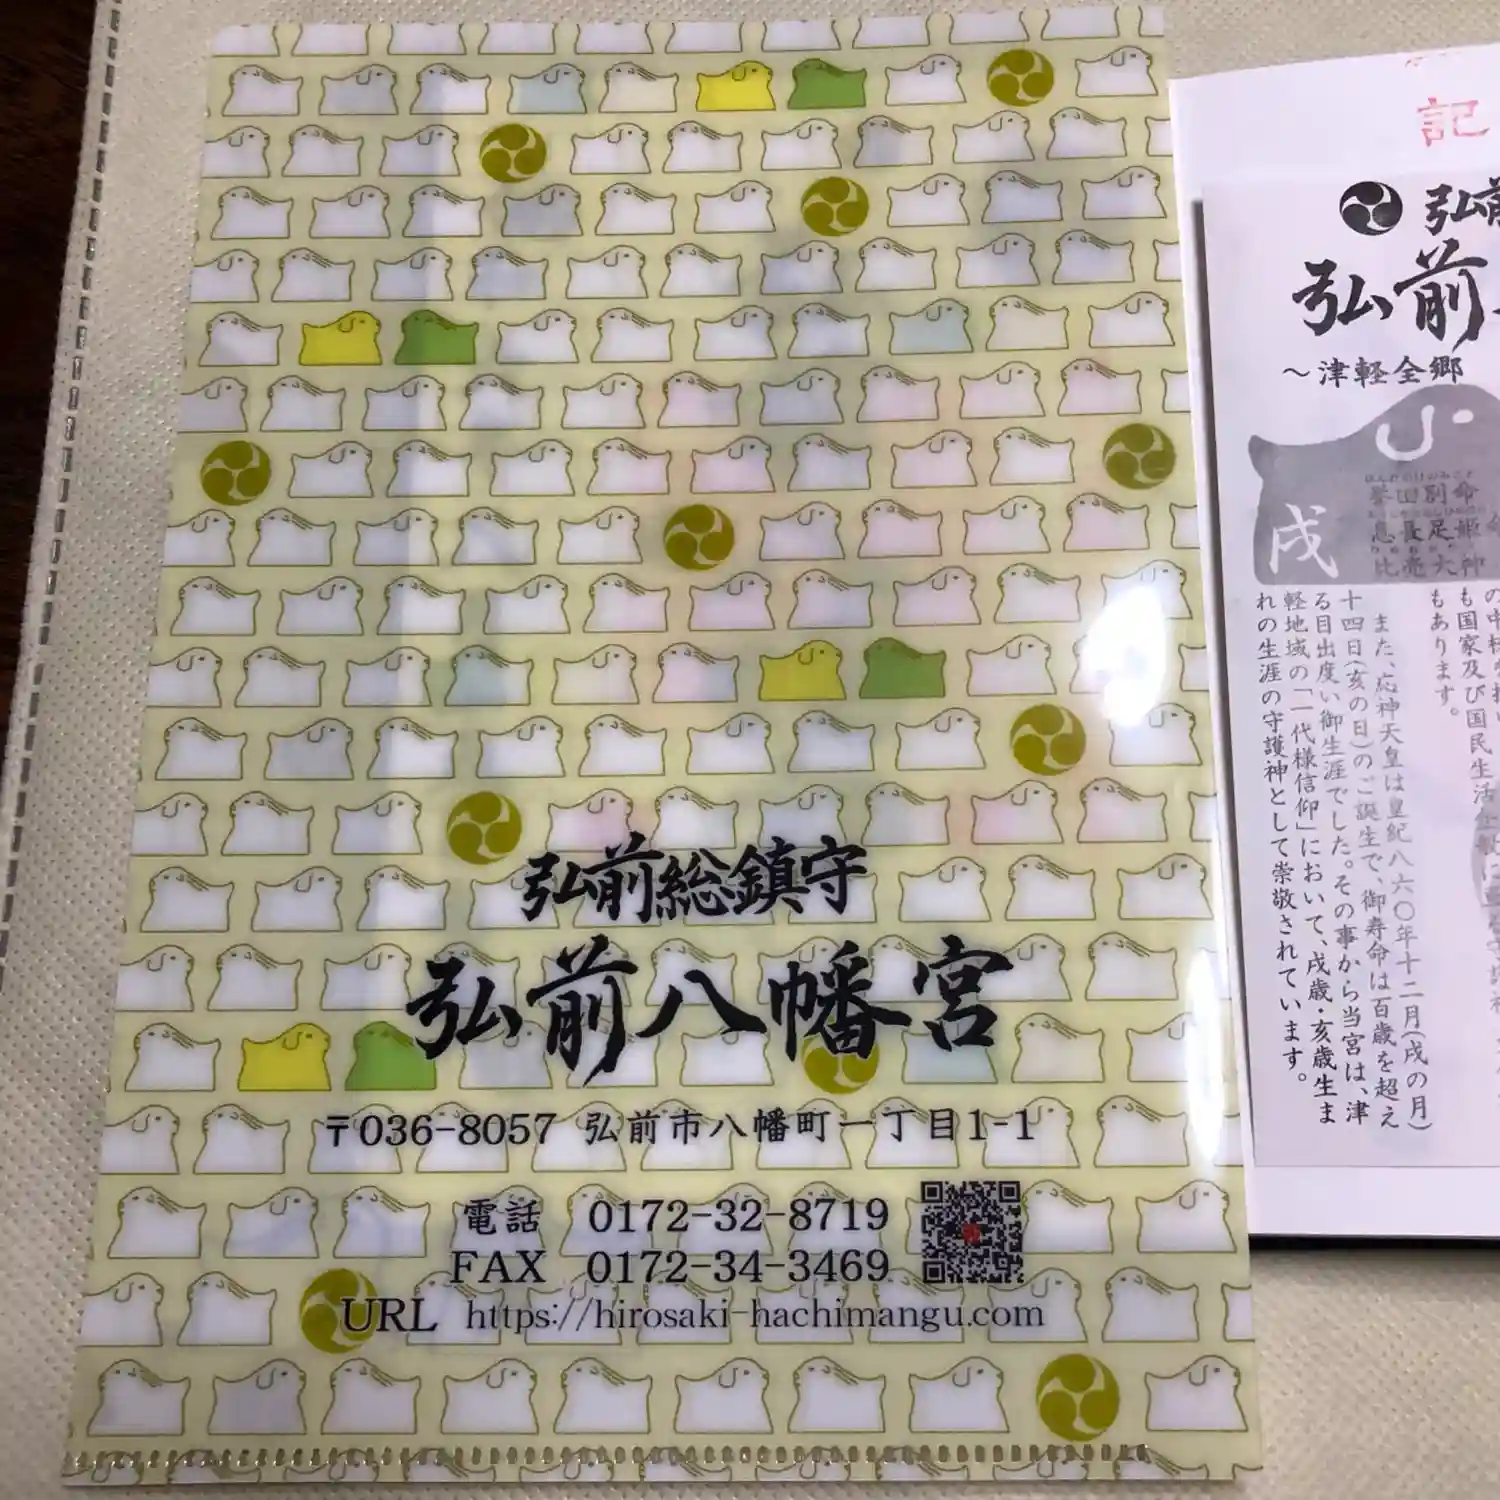 弘前総鎮守
弘前八幡宮
〒036-8057 弘前市八幡町一丁目1-1
電話 0172-32-8719
FAX 0172-34-3469
URL https://hirosaki-hachimangu.com
記
弘前
弘前
〜津軽全郷
戌
誉田別命
息長足姫命
比売大神
もあります。
また、応神天皇は皇紀八六〇年十二月(戌の月)
十四日(亥の日)のご誕生で、御寿命は百歳を超え
る目出度い御生涯でした。その事から当宮は、津
軽地域の「一代様信仰」において、戌歳・亥歳生ま
れの生涯の守護神として崇敬されています。